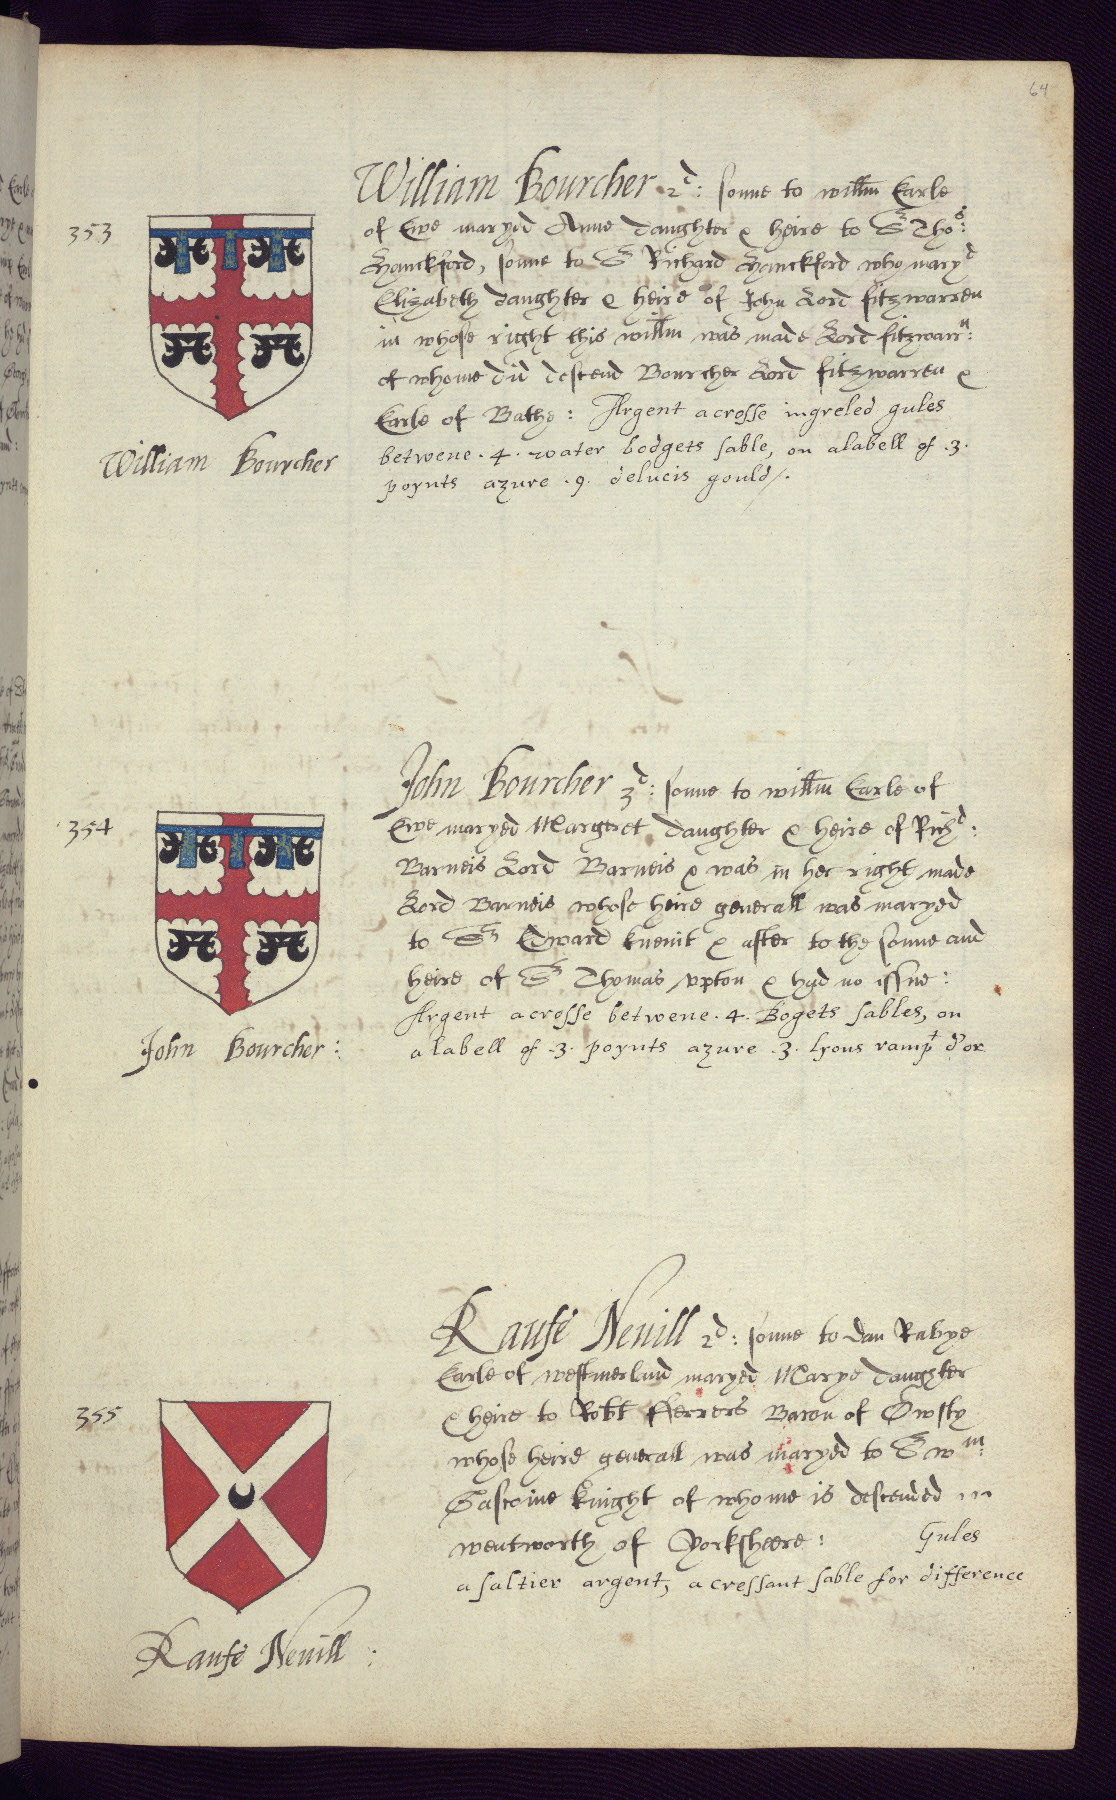 64
353
William Bourcher 2d: sonne to willm Earle
of Ewe maryed Anne daughter & heire to Sr Thos:
Hanckford, sonne to Sr Richard Hanckford who maryd
Elizabeth daughter & heire of John Lord fitzwarren
in whose right this willm was made Lord fitzwarrn:
of whome did descend Bourcher Lord fitzwarren &
Earle of Bathe: Argent a crosse ingreled gules
betwene .4. water bodgets sable, on a labell of .3.
poynts azure .9. delucis gould/.
William Bourcher
354
John Bourcher 3d: sonne to willm Earle of
Ewe maryed Margeret daughter & heire of Richd:
Barneis Lord Barneis & was in her right made
Lord Barneis whose heire generall was maryed
to Sr Edward knevit & after to the sonne and
heire of Sr Thomas upton & hyd no issue:
Argent a crosse betwene .4. Bogets sables, on
a labell of .3. poynts azure .3. lyons rampt d'or
John Bourcher:
355
Raufe Nevill 2d: sonne to Dan Rabye
Earle of westmerland maryed Marye daughter
& heire to Robt Ferrers Baron of Owsly
whose heire generall was maryed to Sr wm:
Gascoine knight of whome is descended
wentworth of Yorksheere: Gules
a saltier argent, a cressant sable for difference
Raufe Nevill: